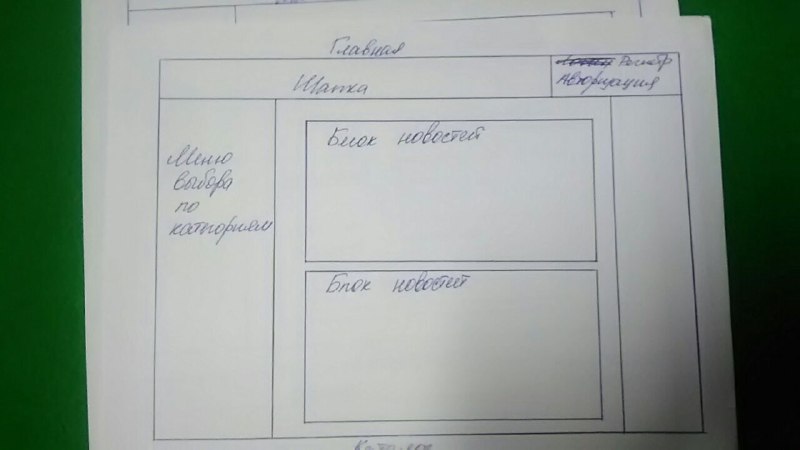 Главная
Шапка
Регистр
Авторизация
Меню
выбора
по
категориям
Блок новостей
Блок новостей
Каталог